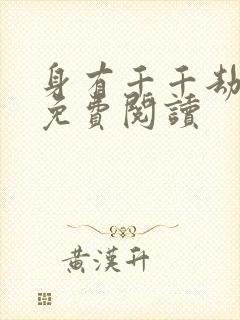 身有千千劫
免費閱讀
黃漢升